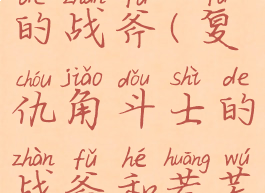 的战斧(复
chóu jiǎo dǒu shì de
仇角斗士的
zhàn fǔ hé huāng wú
战斧和荒芜